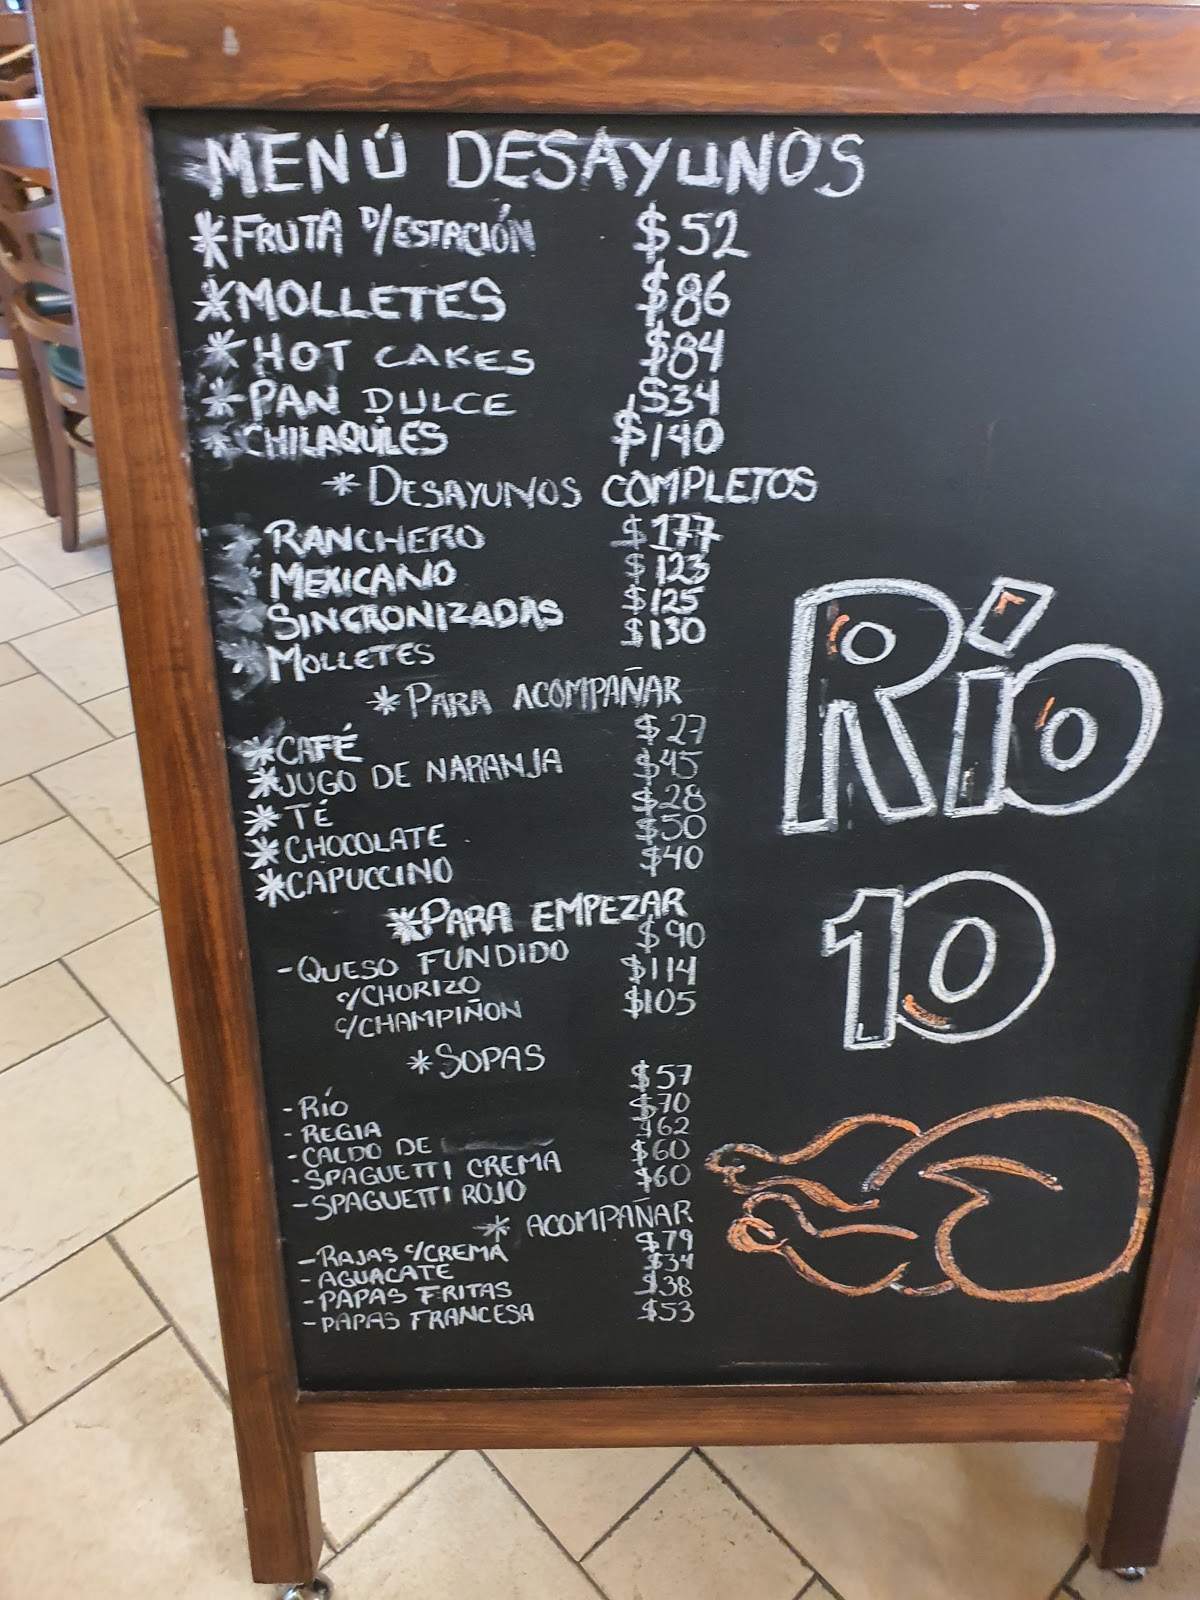 MENÚ DESAYUNOS
*FRUTA D/ESTACIÓN $52
*MOLLETES $86
*HOT CAKES $84
*PAN DULCE $34
*CHILAQUILES $140
*DESAYUNOS COMPLETOS
RANCHERO $177
MEXICANO $123
SINCRONIZADAS $125
MOLLETES $130
*PARA ACOMPAÑAR
*CAFÉ $27
*JUGO DE NARANJA $45
*TÉ $28
*CHOCOLATE $50
*CAPUCCINO $40
*PARA EMPEZAR
-QUESO FUNDIDO $90
c/CHORIZO $114
c/CHAMPIÑON $105
*SOPAS
-RÍO $57
-REGIA $70
-CALDO DE $62
-SPAGUETTI CREMA $60
-SPAGUETTI ROJO $60
* ACOMPAÑAR
-RAJAS c/CREMA $79
-AGUACATE $34
-PAPAS FRITAS $38
-PAPAS FRANCESA $53
RÍO
10